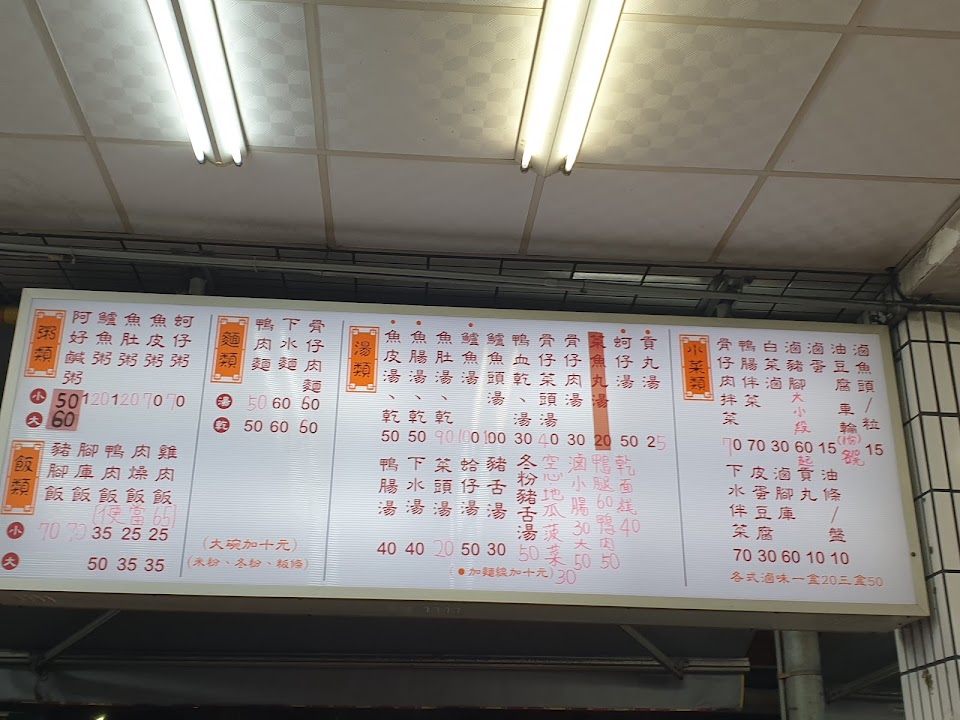 粥類
阿好鹹粥 小50 大60
鱸魚粥 120
魚肚粥 120
魚皮粥 70
蚵仔粥 70
飯類
小 大
豬腳飯 70
腳庫飯 70
鴨肉飯 35 50
肉燥飯 25 35
雞肉飯 25 35
(便當65)
麵類
湯 乾
鴨肉麵 50 50
下水麵 60 60
骨仔肉麵 60 60
(大碗加十元)
(米粉、冬粉、粄條)
湯類
魚皮湯、乾 50
魚腸湯、乾 50
魚肚湯、乾 90
鱸魚湯 100
鱸魚頭湯 100
鴨血乾、湯 30
骨仔菜頭湯 40
骨仔肉湯 30
魚丸湯 20
蚵仔湯 50
貢丸湯 25
鴨腸湯 40
下水湯 40
菜頭湯 20
蛤仔湯 50
豬舌湯 30
冬粉豬舌湯 50
空心.地瓜.菠菜 30
滷小腸30大50
鴨腿60鴨肉50
乾面线40
(●加麵線加十元)
小菜類
骨仔肉拌菜 70
鴨腸伴菜 70
白菜滷 30
滷豬腳大小段 60起
滷蛋 15
油豆腐
滷魚頭/粒 15
下水伴菜 70
皮蛋豆腐 30
滷腳庫 60
貢丸 10
油條/盤 10
各式滷味一盒20三盒50